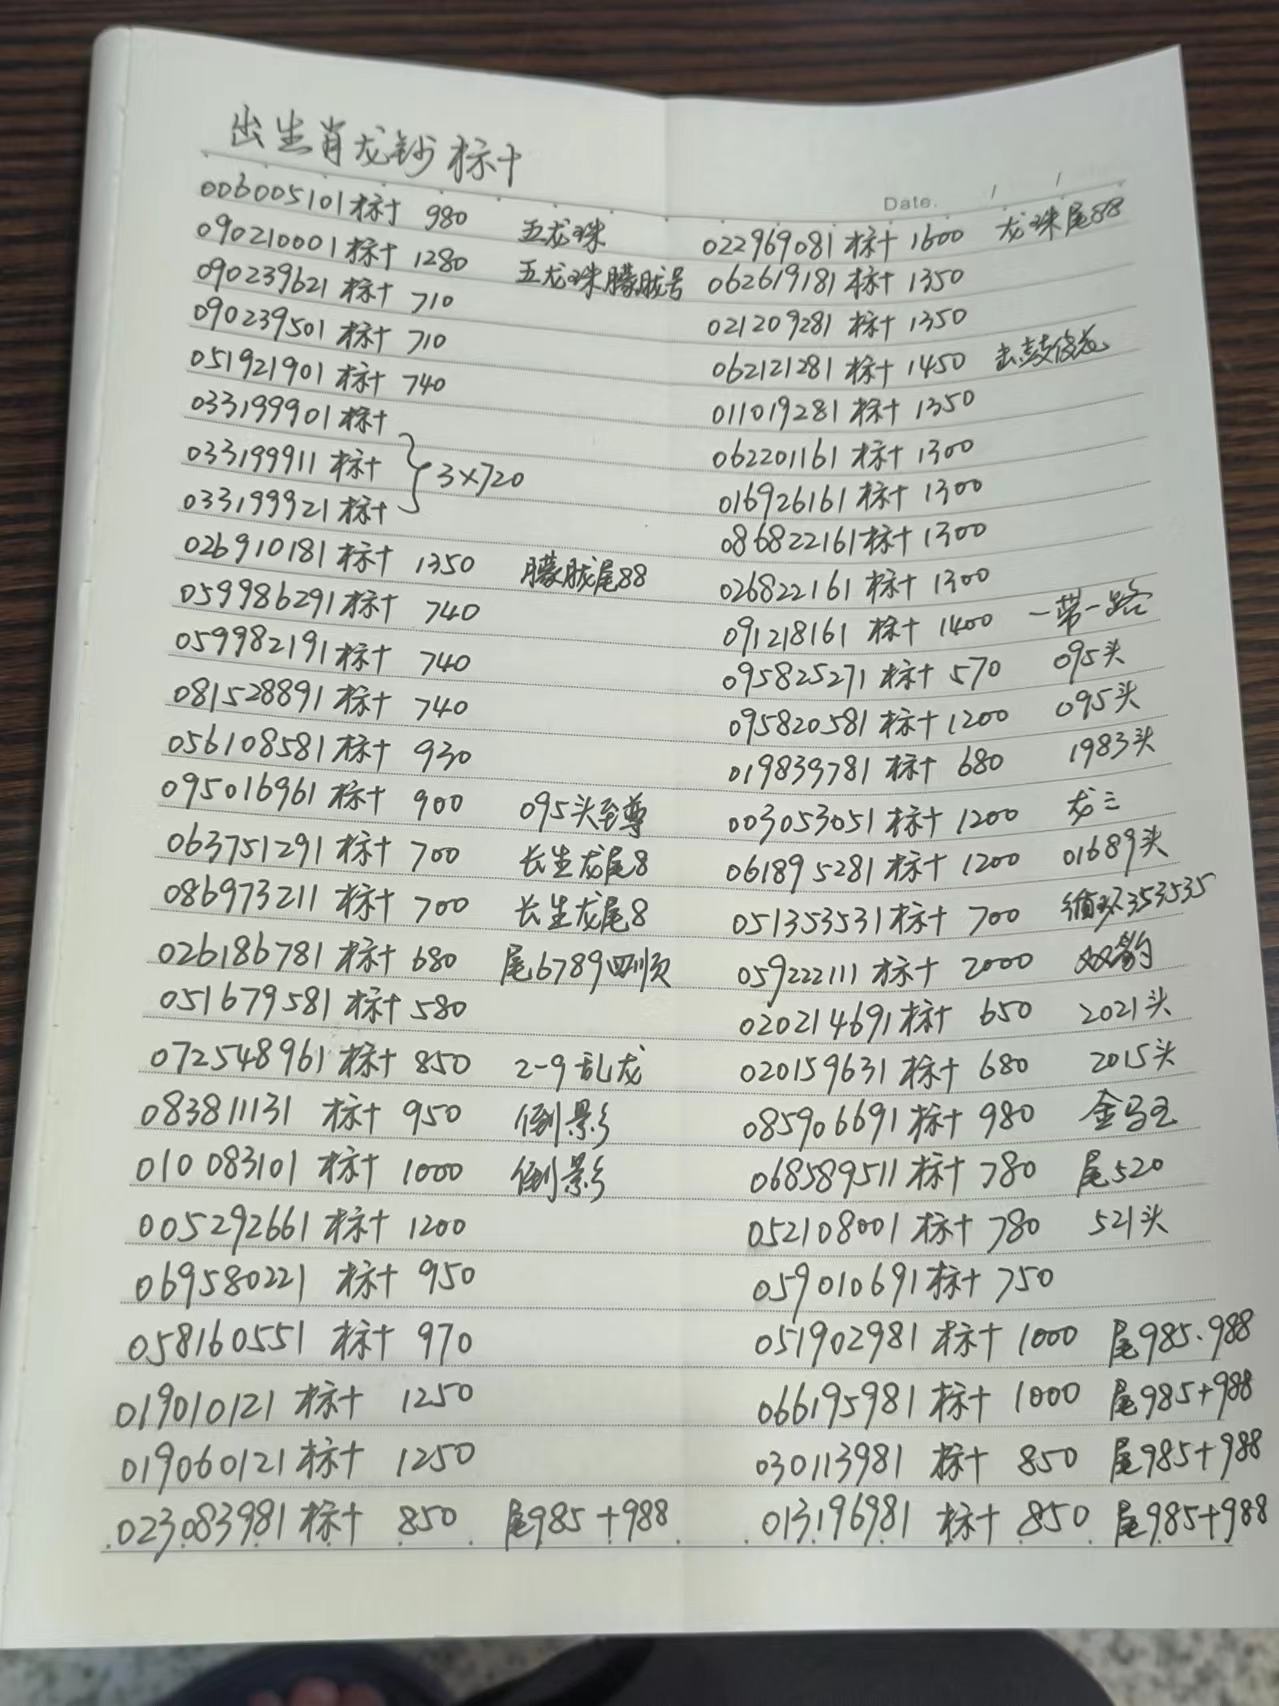 出生肖龙钞标十
006005101标十 980 五龙珠
090210001标十 1280 五龙珠朦胧号
090239621标十 710
090239501标十 710
051921901标十 740
033199901标十
033199911标十 3×720
033199921标十
026910181标十 1350 朦胧尾88
059986291标十 740
059982191标十 740
081528891标十 740
056108581标十 930
095016961标十 900 095头至尊
063751291标十 700 长生龙尾8
086973211标十 700 长生龙尾8
026186781标十 680 尾6789四顺
051679581标十 580
072548961标十 850 2-9乱龙
083811131 标十 950 倒影
010083101 标十 1000 倒影
005292661标十 1200
069580221 标十 950
058160551 标十 970
019010121标十 1250
019060121标十 1250
023083981标十 850 尾985+988
Date. / /
022969081标十 1600 龙珠尾88
062619181标十 1350
021209281标十 1350
062121281标十 1450
011019281标十 1350
062201161标十 1300
016926161标十 1300
086822161标十 1300
026822161标十 1300
091218161标十 1400 一带一路
095825271标十 570 095头
095820581标十 1200 095头
019839781标十 680 1983头
003053051标十 1200 龙三
061895281标十 1200 01689头
051353531标十 700 循环353535
059222111标十 2000 双豹
020214691标十 650 2021头
020159631标十 680 2015头
085906691标十 980 金马王
068589511标十 780 尾520
052108001标十 780 521头
059010691标十 750
051902981标十 1000 尾985.988
066195981标十 1000 尾985+988
030113981标十 850 尾985+988
013196981标十 850 尾985+988